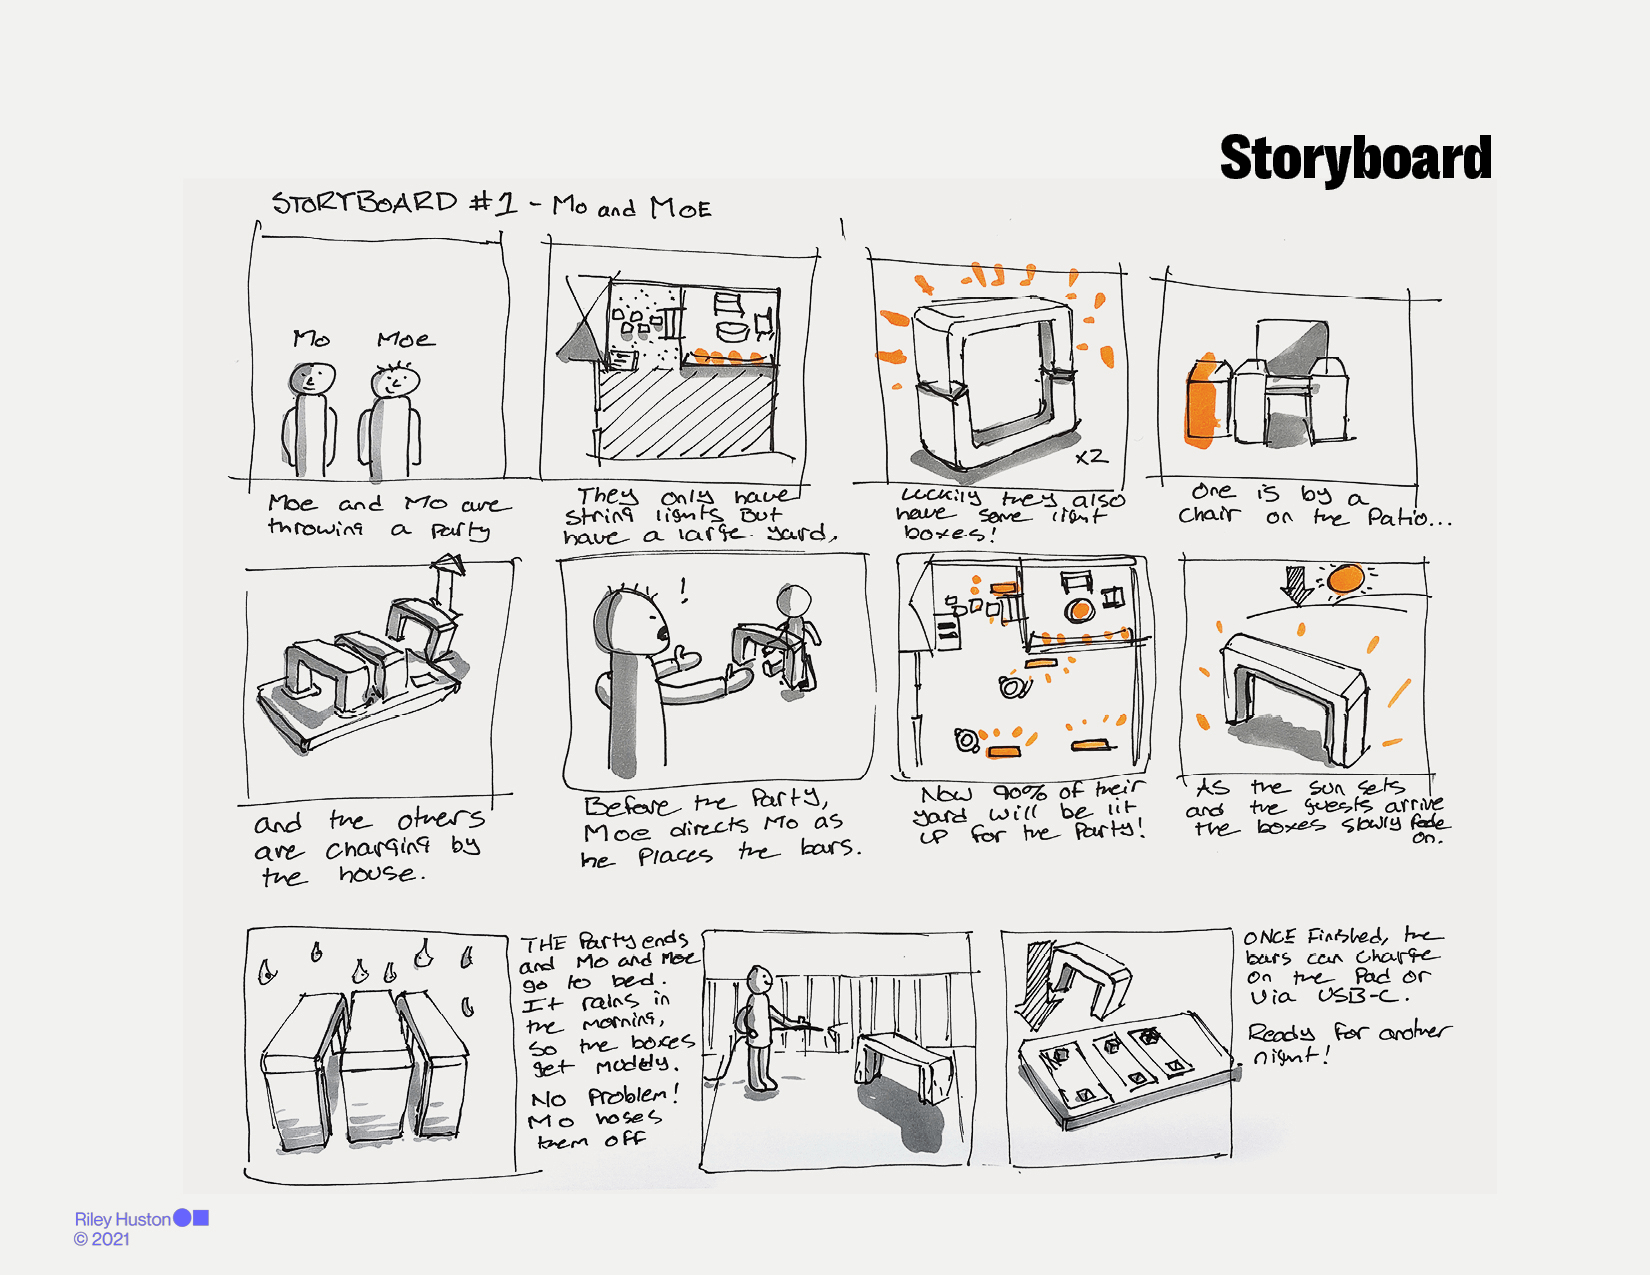 Storyboard
STORYBOARD #1 - Mo and MOE
Mo
Moe
Moe and Mo are
throwing a party
They only have
string lights but
have a large yard,
x2
Luckily they also
have some light
boxes!
One is by a
chair on the patio...
and the others
are charging by
the house.
!
Before the party,
Moe directs Mo as
he places the bars.
Now 90% of their
yard will be lit
up for the party!
As the sun sets
and the guests arrive
the boxes slowly fade
on.
THE party ends
and Mo and Moe
go to bed.
It rains in
the morning,
so the boxes
get muddy.
No problem!
Mo hoses
them off
ONCE finished, the
bars can charge
on the pad or
via USB-C.
Ready for another
night!
Riley Huston
© 2021